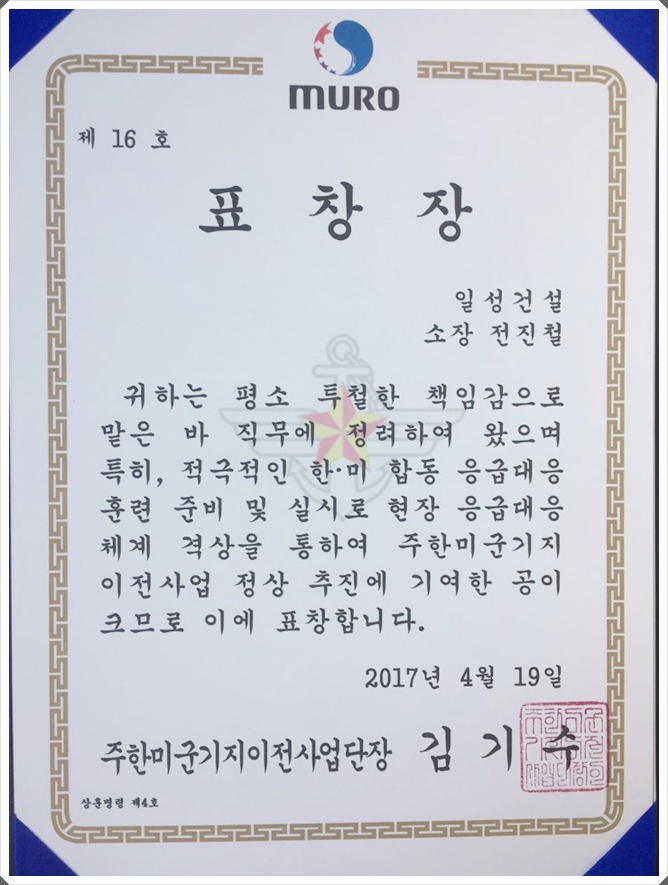 MURO
제 16 호
표 창 장
일성건설
소장 전진철
귀하는 평소 투철한 책임감으로
맡은 바 직무에 정려하여 왔으며
특히, 적극적인 한·미 합동 응급대응
훈련 준비 및 실시로 현장 응급대응
체계 격상을 통하여 주한미군기지
이전사업 정상 추진에 기여한 공이
크므로 이에 표창합니다.
2017년 4월 19일
주한미군기지이전사업단장 김 기 수
상훈명령 제4호